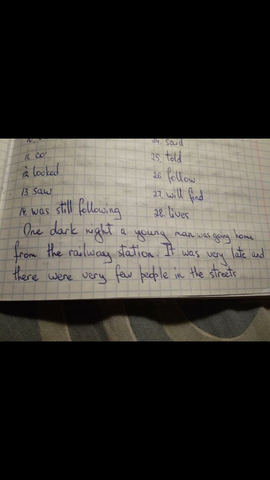 24. said
25. told
12. looked
26. follow
13. saw
27. will find
14. was still following
28. lives
One dark night a young man was going home
from the railway station. It was very late and
there were very few people in the streets